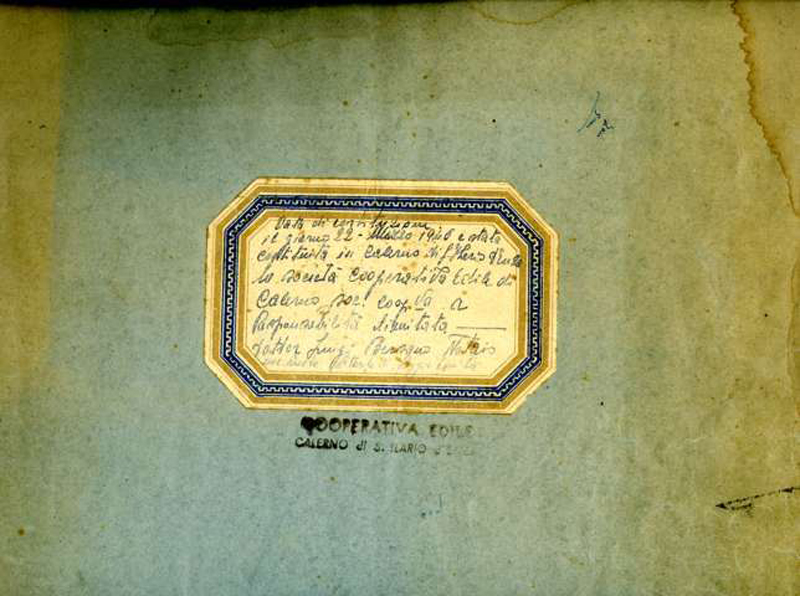 Data di costituzione
il giorno 22 - Marzo 1946 è stata
costituita in Calerno di S. Ilario d'Enza
la società cooperativa Edile di
Calerno soc. coop.va a
Responsabilità limitata
Dottor Luigi Notaio
COOPERATIVA EDILE
CALERNO di S. ILARIO d'